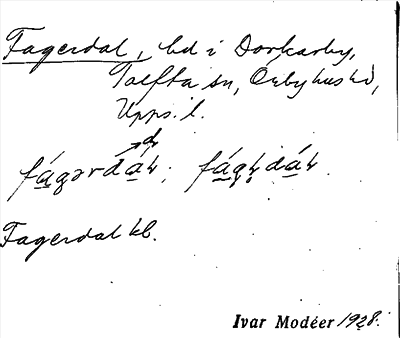 Fagerdal, bd i Dorkarby,
Tolfta sn, Örbyhus hd,
Upps. l.
Fagerdal kb.
Ivar Modéer 1928.